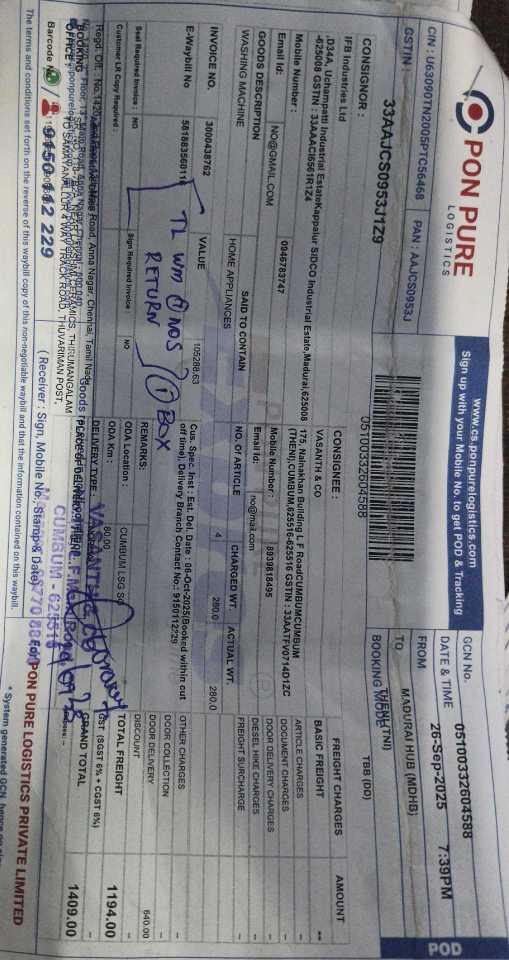 PON PURE
LOGISTICS
www.cs.ponpurelogistics.com
Sign up with your Mobile No. to get POD & Tracking
POD
CIN : U63090TN2005PTC56468
GSTIN :
PAN : AAJCS0953J
33AAJCS0953J1Z9
05100332604588
GCN No. 05100332604588
DATE & TIME 26-Sep-2025 7:39PM
FROM MADURAI HUB (MDHB)
TO THENI(TNI)
BOOKING MODE TBB (DD)
CONSIGNOR :
IFB Industries Ltd
,D34A, Uchampatti Industrial EstateKappalur SIDCO Industrial Estate,Madurai,625008
-625008 GSTIN : 33AAACI6561R1Z4
Mobile Number : 0946783747
Email Id: NO@GMAIL.COM
CONSIGNEE :
VASANTH & CO
175, Nainakhan Building L F RoadCUMBUMCUMBUM
(THENI),CUMBUM,625516-625516 GSTIN : 33AATFV0714D1ZC
Mobile Number : 8939818495
Email Id: no@mail.com
GOODS DESCRIPTION SAID TO CONTAIN NO. OF ARTICLE CHARGED WT. ACTUAL WT.
WASHING MACHINE HOME APPLIANCES 4 280.0 280.0
INVOICE NO. VALUE
3000438762 105288.63
E-Waybill No 581883560111
TL WM 1 NOS
RETURN
1 BOX
Cus. Spec. Inst : Est. Del. Date : 06-Oct-2025(Booked within cut
off time) Delivery Branch Contact No.: 9150112229
REMARKS:
Seal Required Invoice : NO
Sign Required Invoice : NO
Customer LR Copy Required :
ODA Location : CUMBUM LSG SO
ODA Km : 80.00
DELIVERY TYPE :
FREIGHT CHARGES AMOUNT
BASIC FREIGHT --
ARTICLE CHARGES --
DOCUMENT CHARGES --
DOOR DELIVERY CHARGES --
DIESEL HIKE CHARGES --
FREIGHT SURCHARGE --
OTHER CHARGES --
DOOR COLLECTION --
DOOR DELIVERY 640.00
DISCOUNT --
TOTAL FREIGHT 1194.00
GST (SGST 6% + CGST 6%)
GRAND TOTAL 1409.00
BOOKING
OFFICE :
THUVARIMAN POST,
VASANTH & CO
CUMBUM - 625516
Barcode
9150 112 229
( Receiver : Sign, Mobile No, Stamp & Date)
For PON PURE LOGISTICS PRIVATE LIMITED
The terms and conditions set forth on the reverse of this waybill copy of this non-negotiable waybill and that the information contained on this waybill.
* System generated GCN, hence no